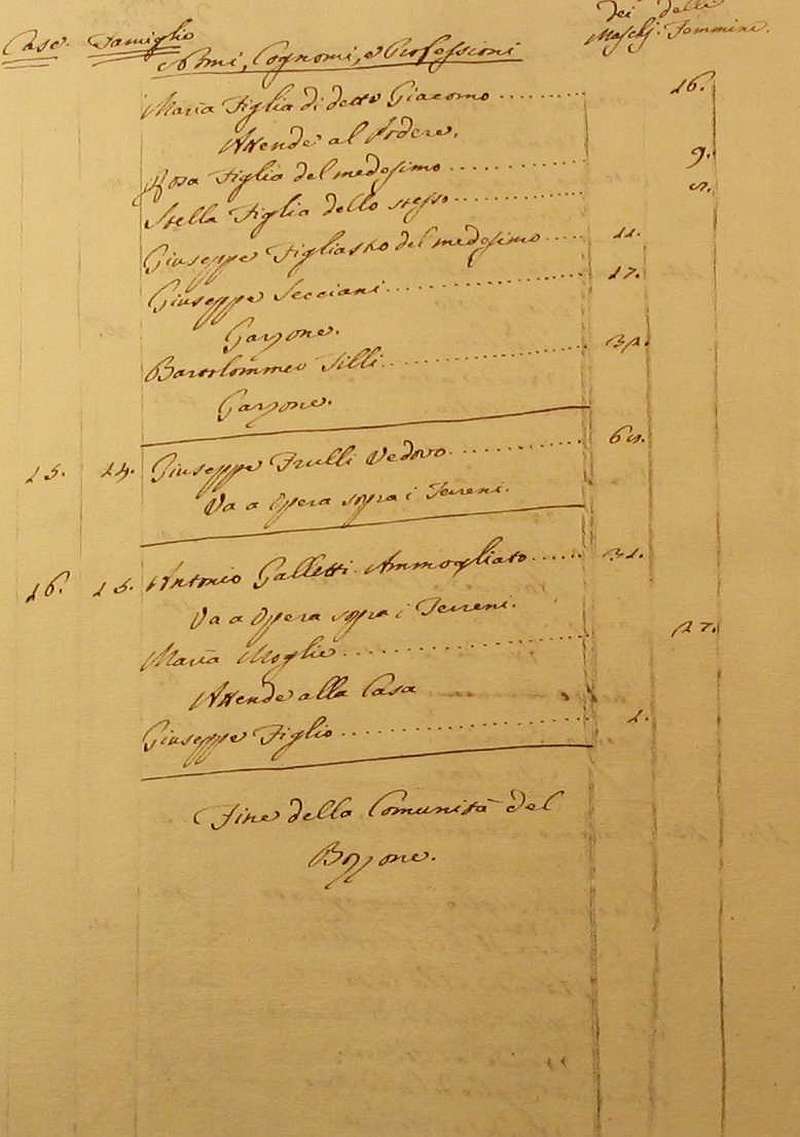 dei delle
Case. Famiglie Nomi, Cognomi, e Professioni Maschj. Femmine.
Maria Figlia di detto Giacomo .......... 16.
Attende al Podere.
Rosa Figlia del medesimo .......... 9.
Stella Figlia dello stesso ..........
Giuseppe Figliastro del medesimo ..... 11.
Giuseppe Secciani .......... 17.
Garzone.
Bartolommeo Tilli ..........
Garzone.
15. 14. Giuseppe Frulli Vedovo ..........
Va a Opera sopra i Terreni.
16. 15. Antonio Galletti Ammogliato ...... 31.
Va a Opera sopra i Terreni.
Maria Moglie .......... 27.
Attende alla Casa
Giuseppe Figlio .......... 1.
Fine della Comunità del
Bozzone.